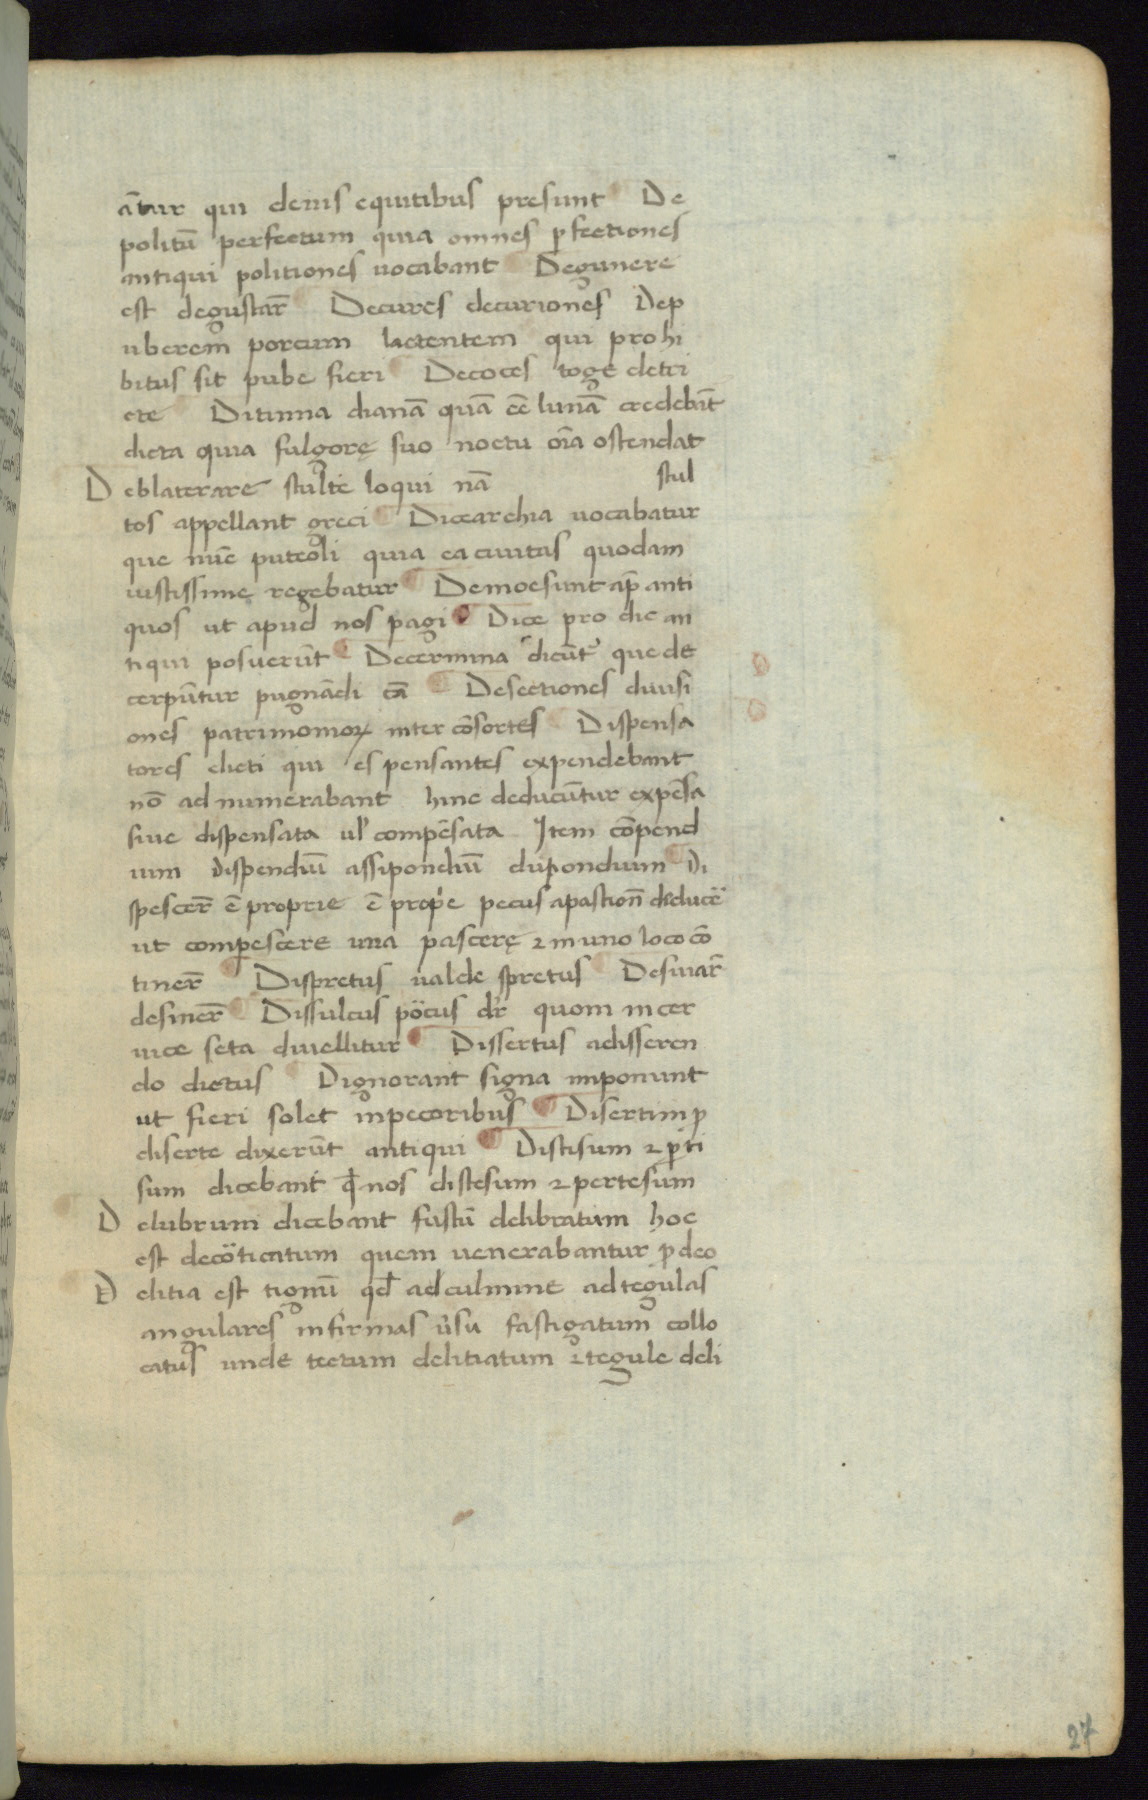 ãtur qui denis equitibus presunt De
politũ perfectum quia omnes ꝑfectiones
antiqui politiones uocabant Degunere
est degustar̃ Decures decuriones Dep
uberem porcum lactentem qui prohi
bitus sit pube fieri Decoces toge detri
cte Ditinna dianã quã eẽ lunã credebãt
dicta quia fulgorę suo noctu oĩa ostendat
D eblaterare stulte loqui nã stul
tos appellant greci Dicearchia uocabatur
que nũc puteoli quia ea ciuitas quodam
iustissime regebatur Demoesunt ap̃ anti
quos ut apud nos pagi Dice pro dic an
tiqui posuerũt Decermina dicũt᷑ que de
cerpũtur pugnãdi cã Desectiones diuisi
ones patrimonioꝝ inter cõsortes Dispensa
tores dicti qui es pensantes expendebant
nõ adnumerabant hinc deducũtur expẽsa
siue dispensata ul̉ compẽsata Item cõpend
ium dispendiũ assipondiũ dupondium Di
spescer̃ ẽ proprie ẽ prop̉e pecus apastion̄ deducẽ
ut compescere una pascerę ⁊ in uno loco cõ
tiner̃ Dispretus ualde spretus Desiuar̃
desiner̃ Dissulcus põcus dr̃ quom incer
uice seta diuellitur Dissertus adisseren
do dictus Dignorant signa imponunt
ut fieri solet inpecoribus Disertim ꝑ
diserte dixerũt antiqui Distisum ⁊ ꝑti
sum dicebant qđ nos distesum ⁊ pertesum
D elubrum dicebant fustũ delibratum hoc
est decõticatum quem uenerabantur ꝑ deo
D elitia est tignũ qđ adculmine ad tegulas
angulares infirmas ũsu fastigatum collo
catus unde tectum delitiatum ⁊ tegule deli
27